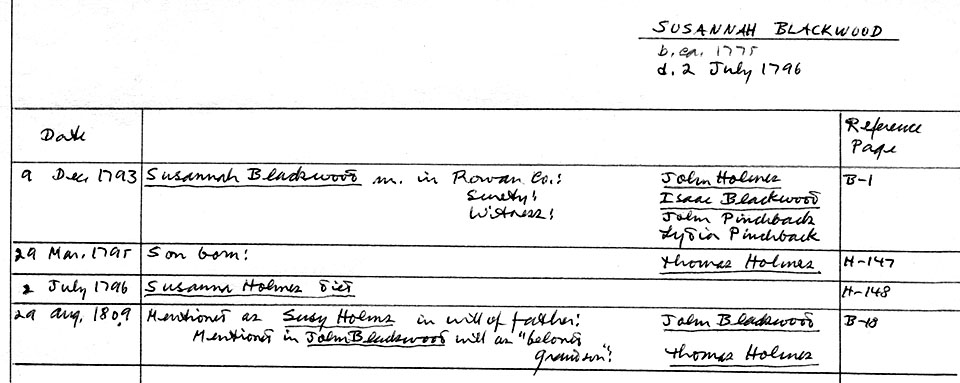 SUSANNAH BLACKWOOD
b. ca. 1775
d. 2 July 1796
Date
Reference Page
9 Dec. 1793 Susannah Blackwood m. in Rowan Co.: John Holmes B-1
Surety: Isaac Blackwood
Witness: John Pinchback
Lydia Pinchback
29 Mar. 1795 Son born: Thomas Holmes H-147
2 July 1796 Susanna Holmes died H-148
29 Aug. 1809 Mentioned as Susy Holms in will of father: John Blackwood B-18
Mentioned in John Blackwood will as "beloved
grandson": Thomas Holmes